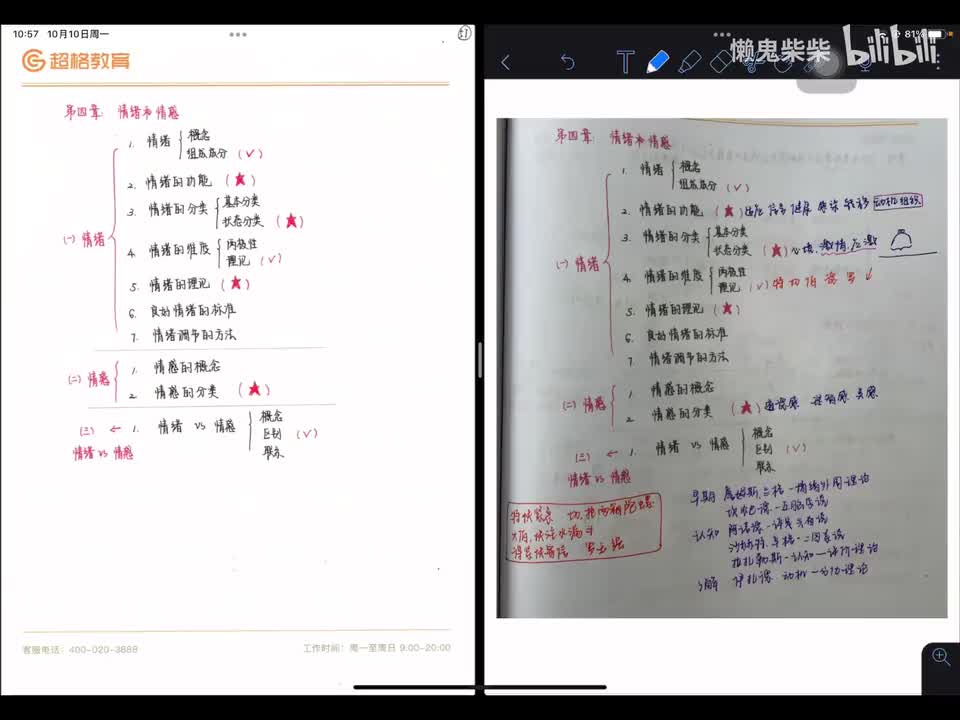 10:57 10月10日周一
超格教育
第四章: 情绪和情感
1. 情绪
概念
组成成分 (√)
2. 情绪的功能 (★)
3. 情绪的分类
基本分类
状态分类 (★)
(一) 情绪
4. 情绪的维度
两极性
理论 (√)
5. 情绪的理论 (★)
6. 良好情绪的标准
7. 情绪调节的方法
(二) 情感
1. 情感的概念
2. 情感的分类 (★)
(三) ← 1. 情绪 vs 情感
概念
区别 (√)
联系
情绪 vs 情感
客服电话: 400-020-3888
工作时间: 周一至周日 9:00-20:00
81%
懒鬼柴柴 bilibili
第四章: 情绪和情感
1. 情绪
概念
组成成分 (√)
2. 情绪的功能 (★) 适应 信号 健康 感染 动机 组织
3. 情绪的分类
基本分类
状态分类 (★) 心境, 激情, 应激
(一) 情绪
4. 情绪的维度
两极性
理论 (√)
5. 情绪的理论 (★)
6. 良好情绪的标准
7. 情绪调节的方法
(二) 情感
1. 情感的概念
2. 情感的分类 (★) 道德感 美感
(三) ← 1. 情绪 vs 情感
概念
区别 (√)
联系
情绪 vs 情感
早期 詹姆斯, 兰格-情绪外周理论
坎特巴德-丘脑学说
认知 阿诺德-评定兴奋说
沙赫特, 辛格-二因素说
拉扎勒斯-认知-评价理论
伊扎德 动机-分化理论